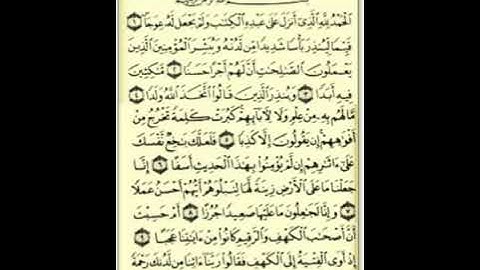 ٱلْحَمْدُ لِلَّهِ ٱلَّذِىٓ أَنزَلَ عَلَىٰ عَبْدِهِ ٱلْكِتَٰبَ وَلَمْ يَجْعَل لَّهُۥ عِوَجَا ۜ ١
قَيِّمًا لِّيُنذِرَ بَأْسًا شَدِيدًا مِّن لَّدُنْهُ وَيُبَشِّرَ ٱلْمُؤْمِنِينَ ٱلَّذِينَ
يَعْمَلُونَ ٱلصَّٰلِحَٰتِ أَنَّ لَهُمْ أَجْرًا حَسَنًا ٢ مَّٰكِثِينَ
فِيهِ أَبَدًا ٣ وَيُنذِرَ ٱلَّذِينَ قَالُوا۟ ٱتَّخَذَ ٱللَّهُ وَلَدًا ٤
مَّا لَهُم بِهِۦ مِنْ عِلْمٍ وَلَا لِءَابَآئِهِمْ ۚ كَبُرَتْ كَلِمَةً تَخْرُجُ مِنْ
أَفْوَٰهِهِمْ ۚ إِن يَقُولُونَ إِلَّا كَذِبًا ٥ فَلَعَلَّكَ بَٰخِعٌ نَّفْسَكَ
عَلَىٰٓ ءَاثَٰرِهِمْ إِن لَّمْ يُؤْمِنُوا۟ بِهَٰذَا ٱلْحَدِيثِ أَسَفًا ٦ إِنَّا
جَعَلْنَا مَا عَلَى ٱلْأَرْضِ زِينَةً لَّهَا لِنَبْلُوَهُمْ أَيُّهُمْ أَحْسَنُ عَمَلًا
٧ وَإِنَّا لَجَٰعِلُونَ مَا عَلَيْهَا صَعِيدًا جُرُزًا ٨ أَمْ حَسِبْتَ
أَنَّ أَصْحَٰبَ ٱلْكَهْفِ وَٱلرَّقِيمِ كَانُوا۟ مِنْ ءَايَٰتِنَا عَجَبًا ٩
إِذْ أَوَى ٱلْفِتْيَةُ إِلَى ٱلْكَهْفِ فَقَالُوا۟ رَبَّنَآ ءَاتِنَا مِن لَّدُنكَ رَحْمَةً